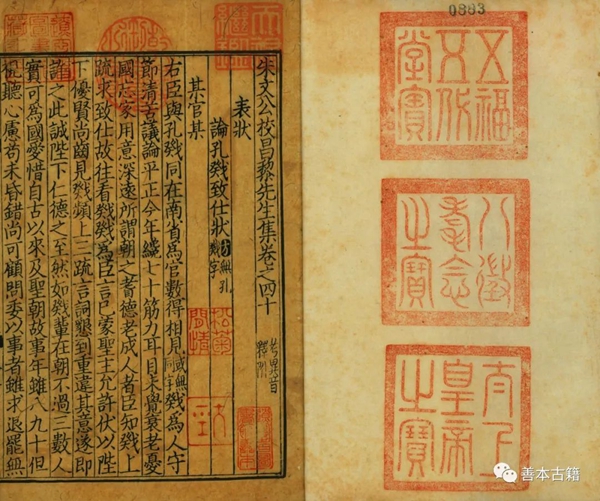 0883
五福五代堂寶
八徵耄念之寶
太上皇帝之寶
天祿繼鑑
朱文公校昌黎先生集卷之四十
表狀
論孔戣致仕狀 方無孔戣字
某官某
右臣與孔戣同在南省為官數得相見 戣為人守
節清苦議論平正今年纔七十筋力耳目未覺衰老憂
國忘家用意深遠所謂朝之耆德老成人者臣知戣上
疏求致仕故往看戣戣為臣言已蒙聖主允許伏以陛
下優賢尚齒見戣頻上三疏言詞懇到重違其意遂即
許之此誠陛下仁德之至然如戣輩在朝不過三數人
實可為國愛惜自古以來及聖朝故事年雖八九十但
視聽心慮苟未昏錯尚可顧問委以事者雖求退罷無
善本古籍